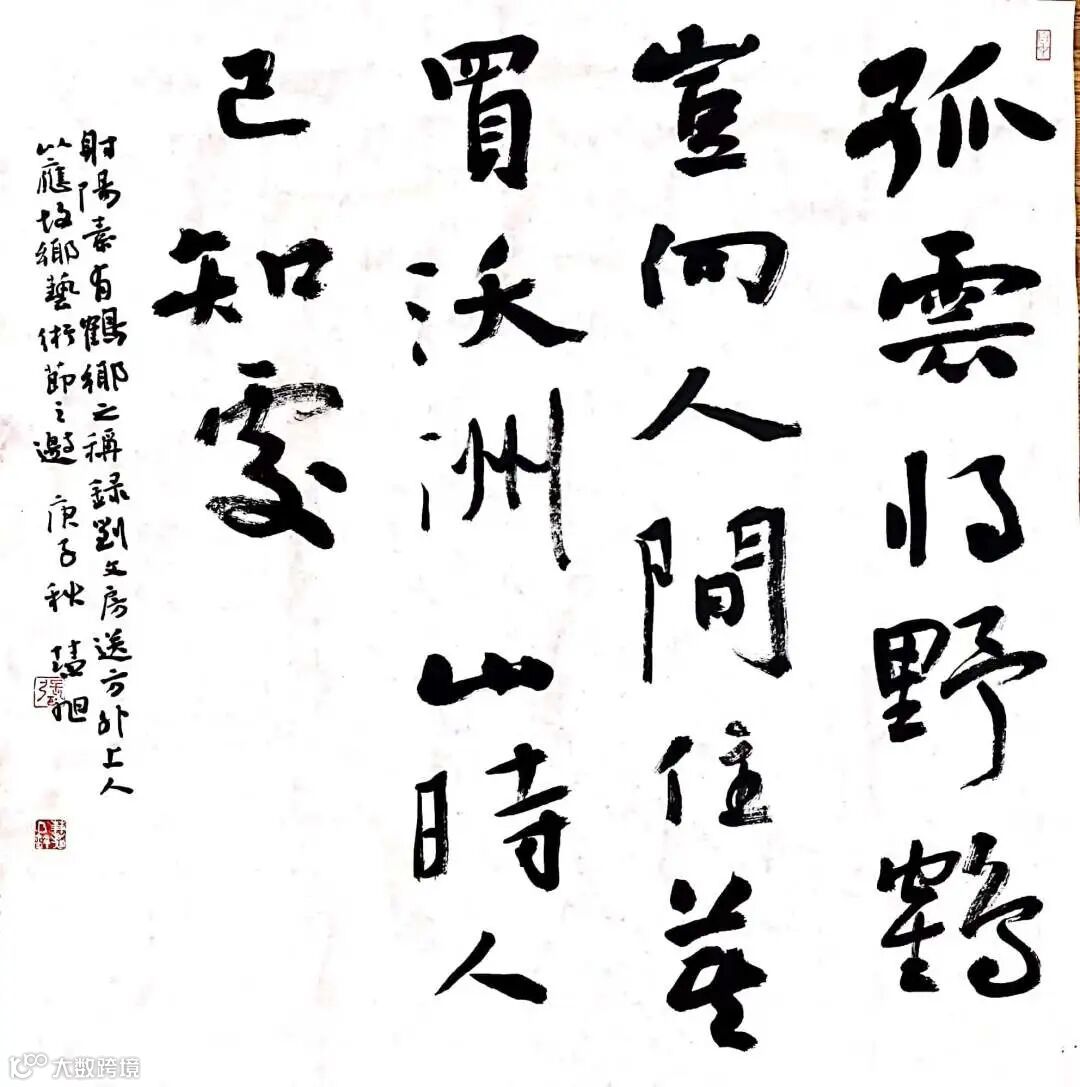 孤雲将野鶴
豈向人間住莫
買沃洲山時人
已知處
射陽素有鶴鄉之稱録劉文房送方外上人
以應故鄉藝術節之邀 庚子秋 慧旭
大数跨境